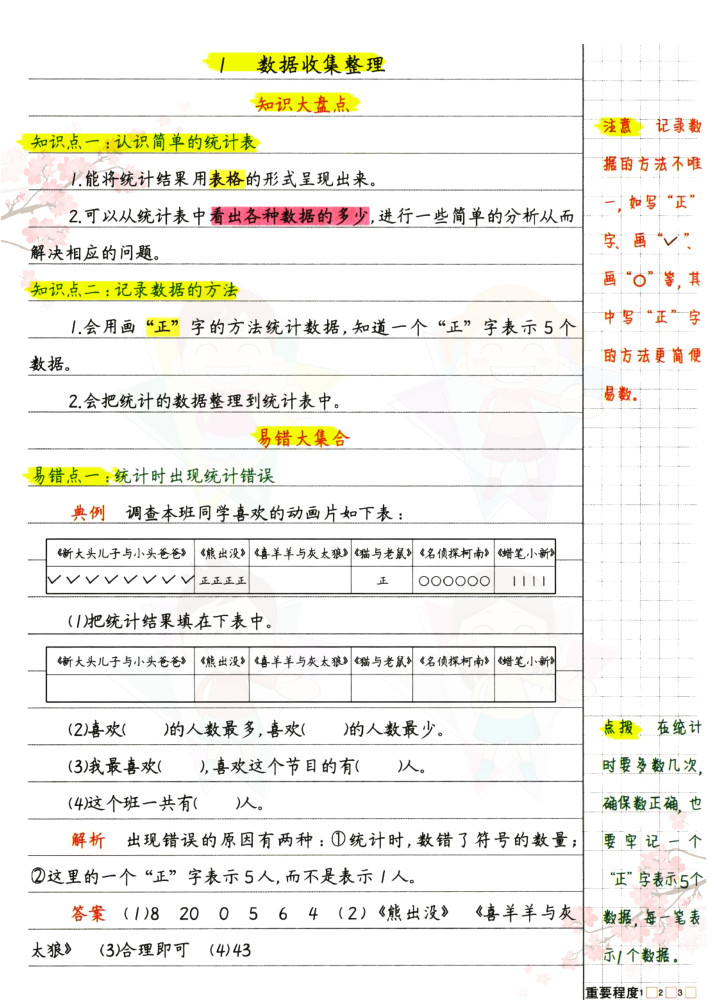 1 数据收集整理
知识大盘点
知识点一:认识简单的统计表
1.能将统计结果用表格的形式呈现出来。
2.可以从统计表中看出各种数据的多少,进行一些简单的分析从而
解决相应的问题。
知识点二:记录数据的方法
1.会用画“正”字的方法统计数据,知道一个“正”字表示5个
数据。
2.会把统计的数据整理到统计表中。
易错大集合
易错点一:统计时出现统计错误
典例 调查本班同学喜欢的动画片如下表:
《新大头儿子与小头爸爸》 《熊出没》 《喜羊羊与灰太狼》 《猫与老鼠》 《名侦探柯南》 《蜡笔小新》
✓✓✓✓✓✓✓✓ 正正正正 正 ○○○○○○ ||||
(1)把统计结果填在下表中。
《新大头儿子与小头爸爸》 《熊出没》 《喜羊羊与灰太狼》 《猫与老鼠》 《名侦探柯南》 《蜡笔小新》
(2)喜欢( )的人数最多,喜欢( )的人数最少。
(3)我最喜欢( ),喜欢这个节目的有( )人。
(4)这个班一共有( )人。
解析 出现错误的原因有两种:①统计时,数错了符号的数量;
②这里的一个“正”字表示5人,而不是表示1人。
答案 (1)8 20 0 5 6 4 (2)《熊出没》 《喜羊羊与灰
太狼》 (3)合理即可 (4)43
注意 记录数
据的方法不唯
一,如写“正”
字、画“✓”、
画“○”等,其
中写“正”字
的方法更简便
易数。
点拨 在统计
时要多数几次,
确保数正确,也
要牢记一个
“正”字表示5个
数据,每一笔表
示1个数据。
重要程度 1 2 3